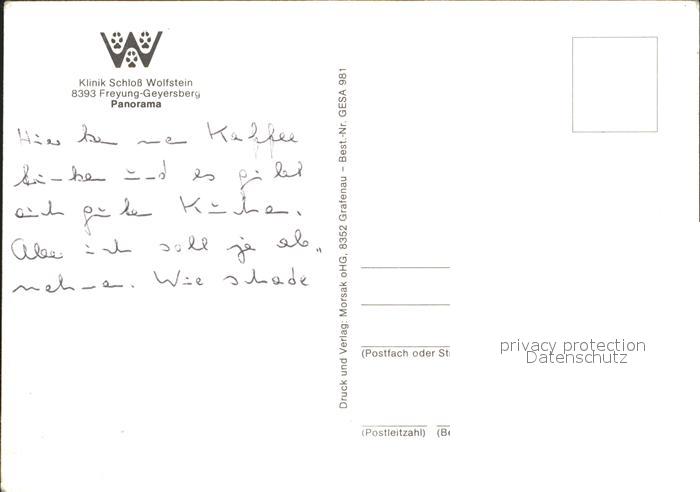 Klinik Schloß Wolfstein
8393 Freyung-Geyersberg
Panorama
Hier kann man Kaffee
trinken und es gibt
auch guten Kuchen.
Aber ich soll ja ab„
nehmen. Wie schade
Druck und Verlag: Morsak oHG, 8352 Grafenau – Best.-Nr. GESA 981
(Postfach oder St
(Postleitzahl) (Be
privacy protection
Datenschutz